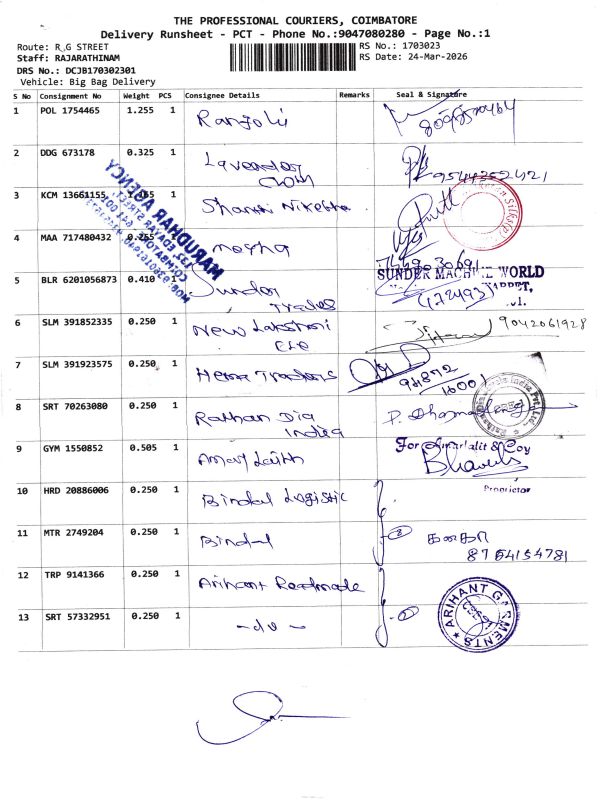 THE PROFESSIONAL COURIERS, COIMBATORE
Delivery Runsheet - PCT - Phone No.:9047080280 - Page No.:1
Route: R.G STREET
RS No.: 1703023
Staff: RAJARATHINAM
RS Date: 24-Mar-2026
DRS No.: DCJB170302301
Vehicle: Big Bag Delivery
S No Consignment No Weight PCS Consignee Details Remarks Seal & Signature
1 POL 1754465 1.255 1 Rangoli
2 DDG 673178 0.325 1 Lavender Cloth 9544352421
3 KCM 13661155 1 Sharan Niketha
4 MAA 717480432 0.255 1 mogha
5 BLR 6201056873 0.410 1 Sundar Trades
SUNDER MACHINE WORLD
(172493)
6 SLM 391852335 0.250 1 New Lakshmi Ele 9042061928
7 SLM 391923575 0.250 1 Hema Traders 94872 16001
8 SRT 70263080 0.250 1 Rathan Dia India
9 GYM 1550852 0.505 1 Amar Lalith
For Amarlalit & Coy
Proprietor
10 HRD 20886006 0.250 1 Bindal Logistic
11 MTR 2749204 0.250 1 Bindal 2 கனகா
8754154781
12 TRP 9141366 0.250 1 Arihant Readmade
13 SRT 57332951 0.250 1 - do -
ARIHANT GARMENTS
MARUDHAR AGENCY
COIMBATORE - 641 001